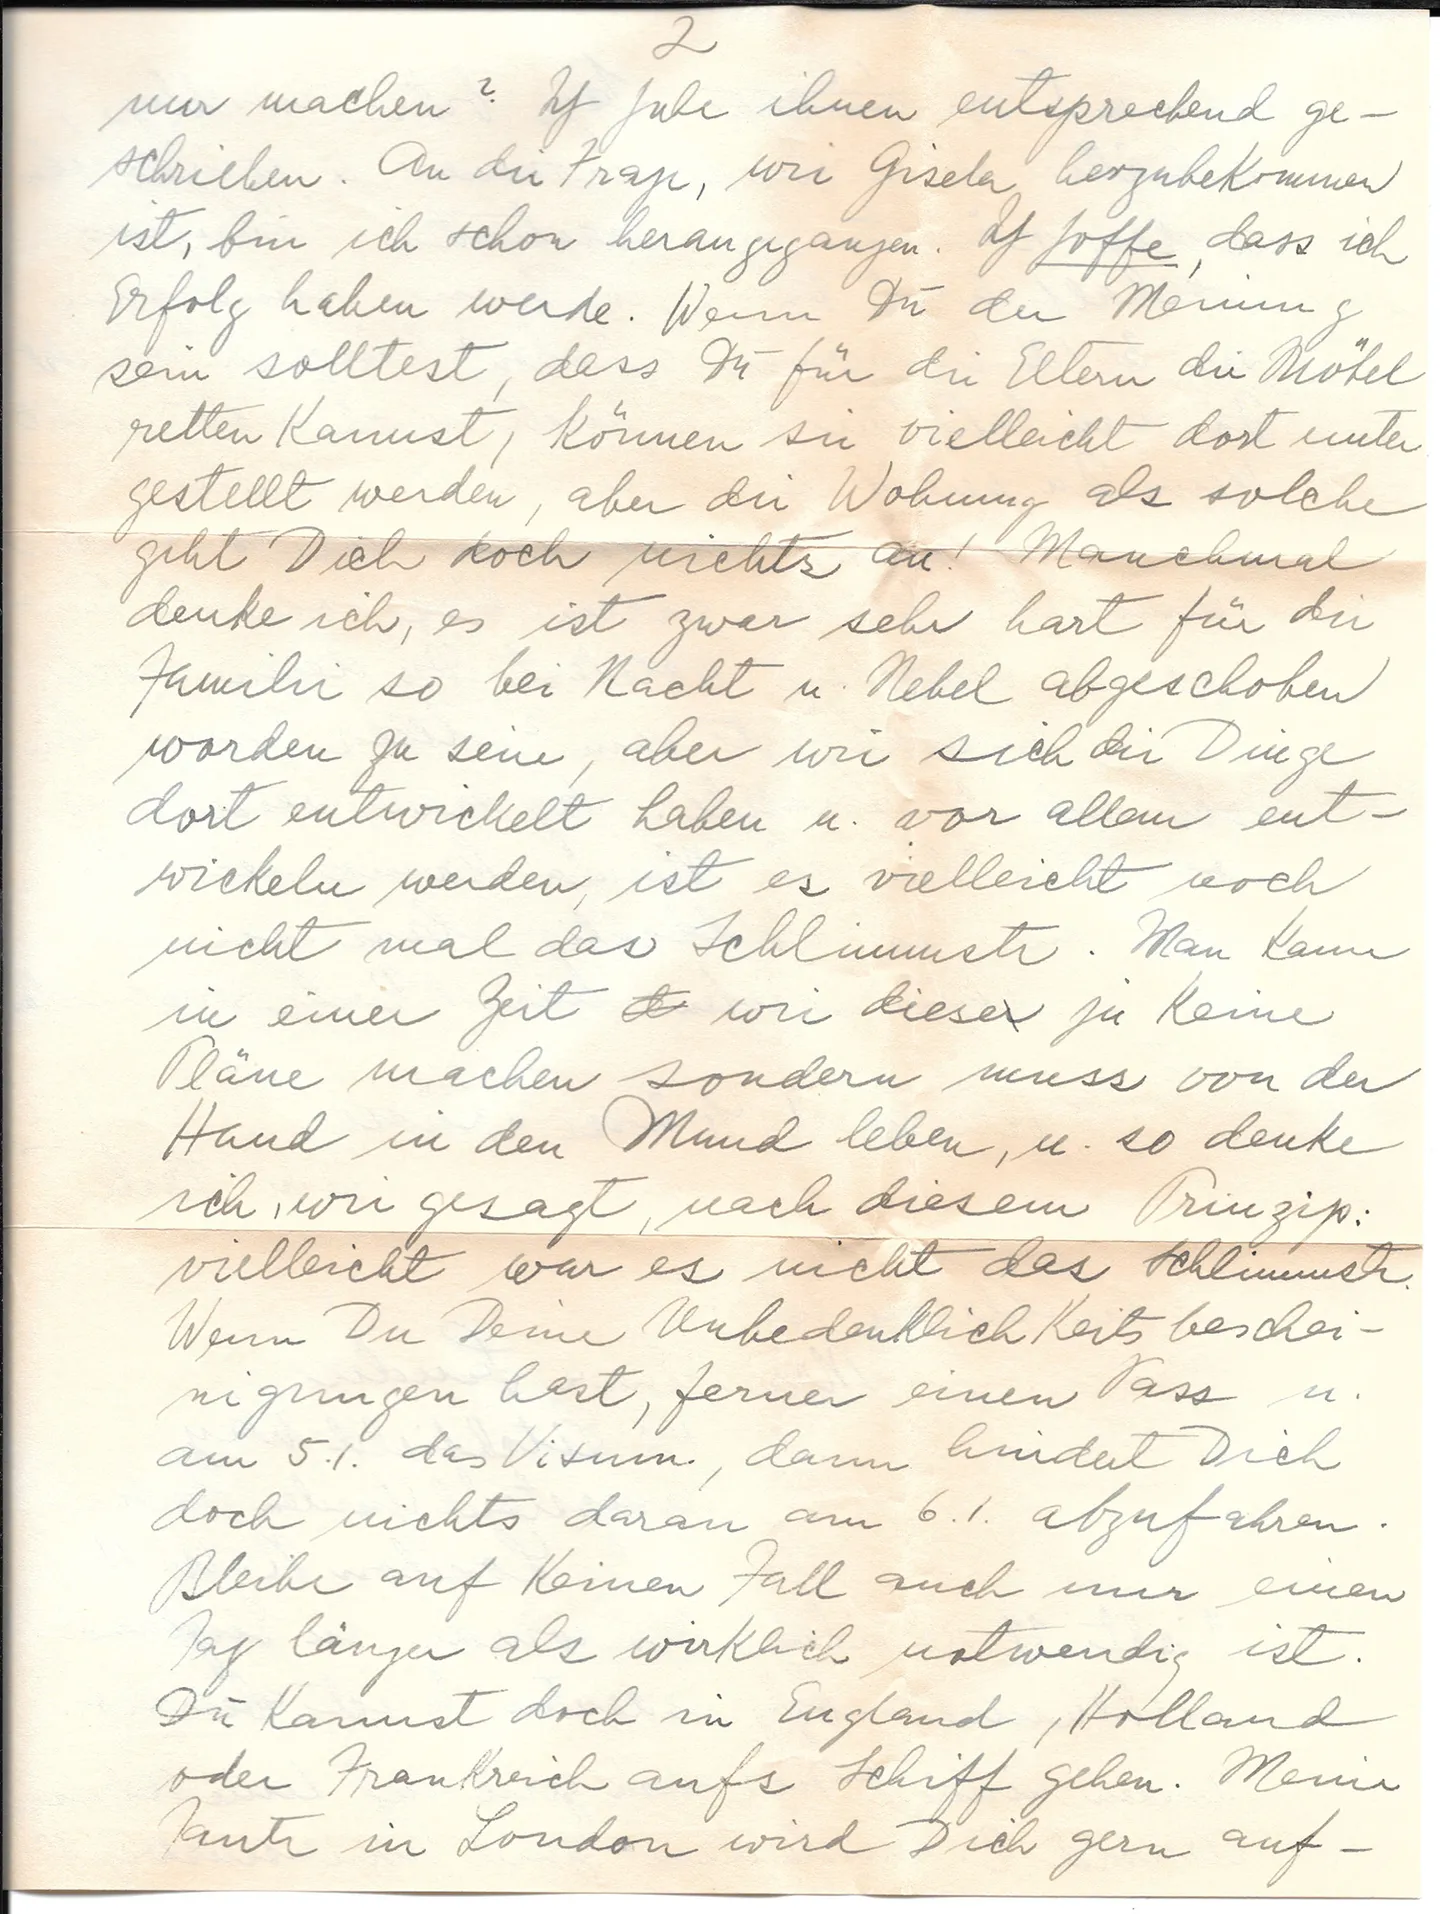 2
nur machen? Ich habe ihnen entsprechend ge-
schrieben. An die Frage, wie Gisela herzubekommen
ist, bin ich schon herangegangen. Ich hoffe, dass ich
Erfolg haben werde. Wenn Du der Meinung
sein solltest, dass Du für die Eltern die Möbel
retten kannst, können sie vielleicht dort unter
gestellt werden, aber die Wohnung als solche
geht Dich doch nichts an! Manchmal
denke ich, es ist zwar sehr hart für die
Familie so bei Nacht u. Nebel abgeschoben
worden zu sein, aber wie sich die Dinge
dort entwickelt haben u. vor allem ent-
wickeln werden, ist es vielleicht noch
nicht mal das Schlimmste. Man kann
in einer Zeit wie dieser ja keine
Pläne machen sondern muss von der
Hand in den Mund leben, u. so denke
ich, wie gesagt, nach diesem Prinzip:
vielleicht war es nicht das Schlimmste.
Wenn Du Deine Unbedenklichkeitsbeschei-
nigungen hast, ferner einen Pass u.
am 5.1. das Visum, dann hindert Dich
doch nichts daran am 6.1. abzufahren.
Bleibe auf keinen Fall auch nur einen
Tag länger als wirklich notwendig ist.
Du kannst doch in England, Holland
oder Frankreich aufs Schiff gehen. Meine
Tante in London wird Dich gern auf-